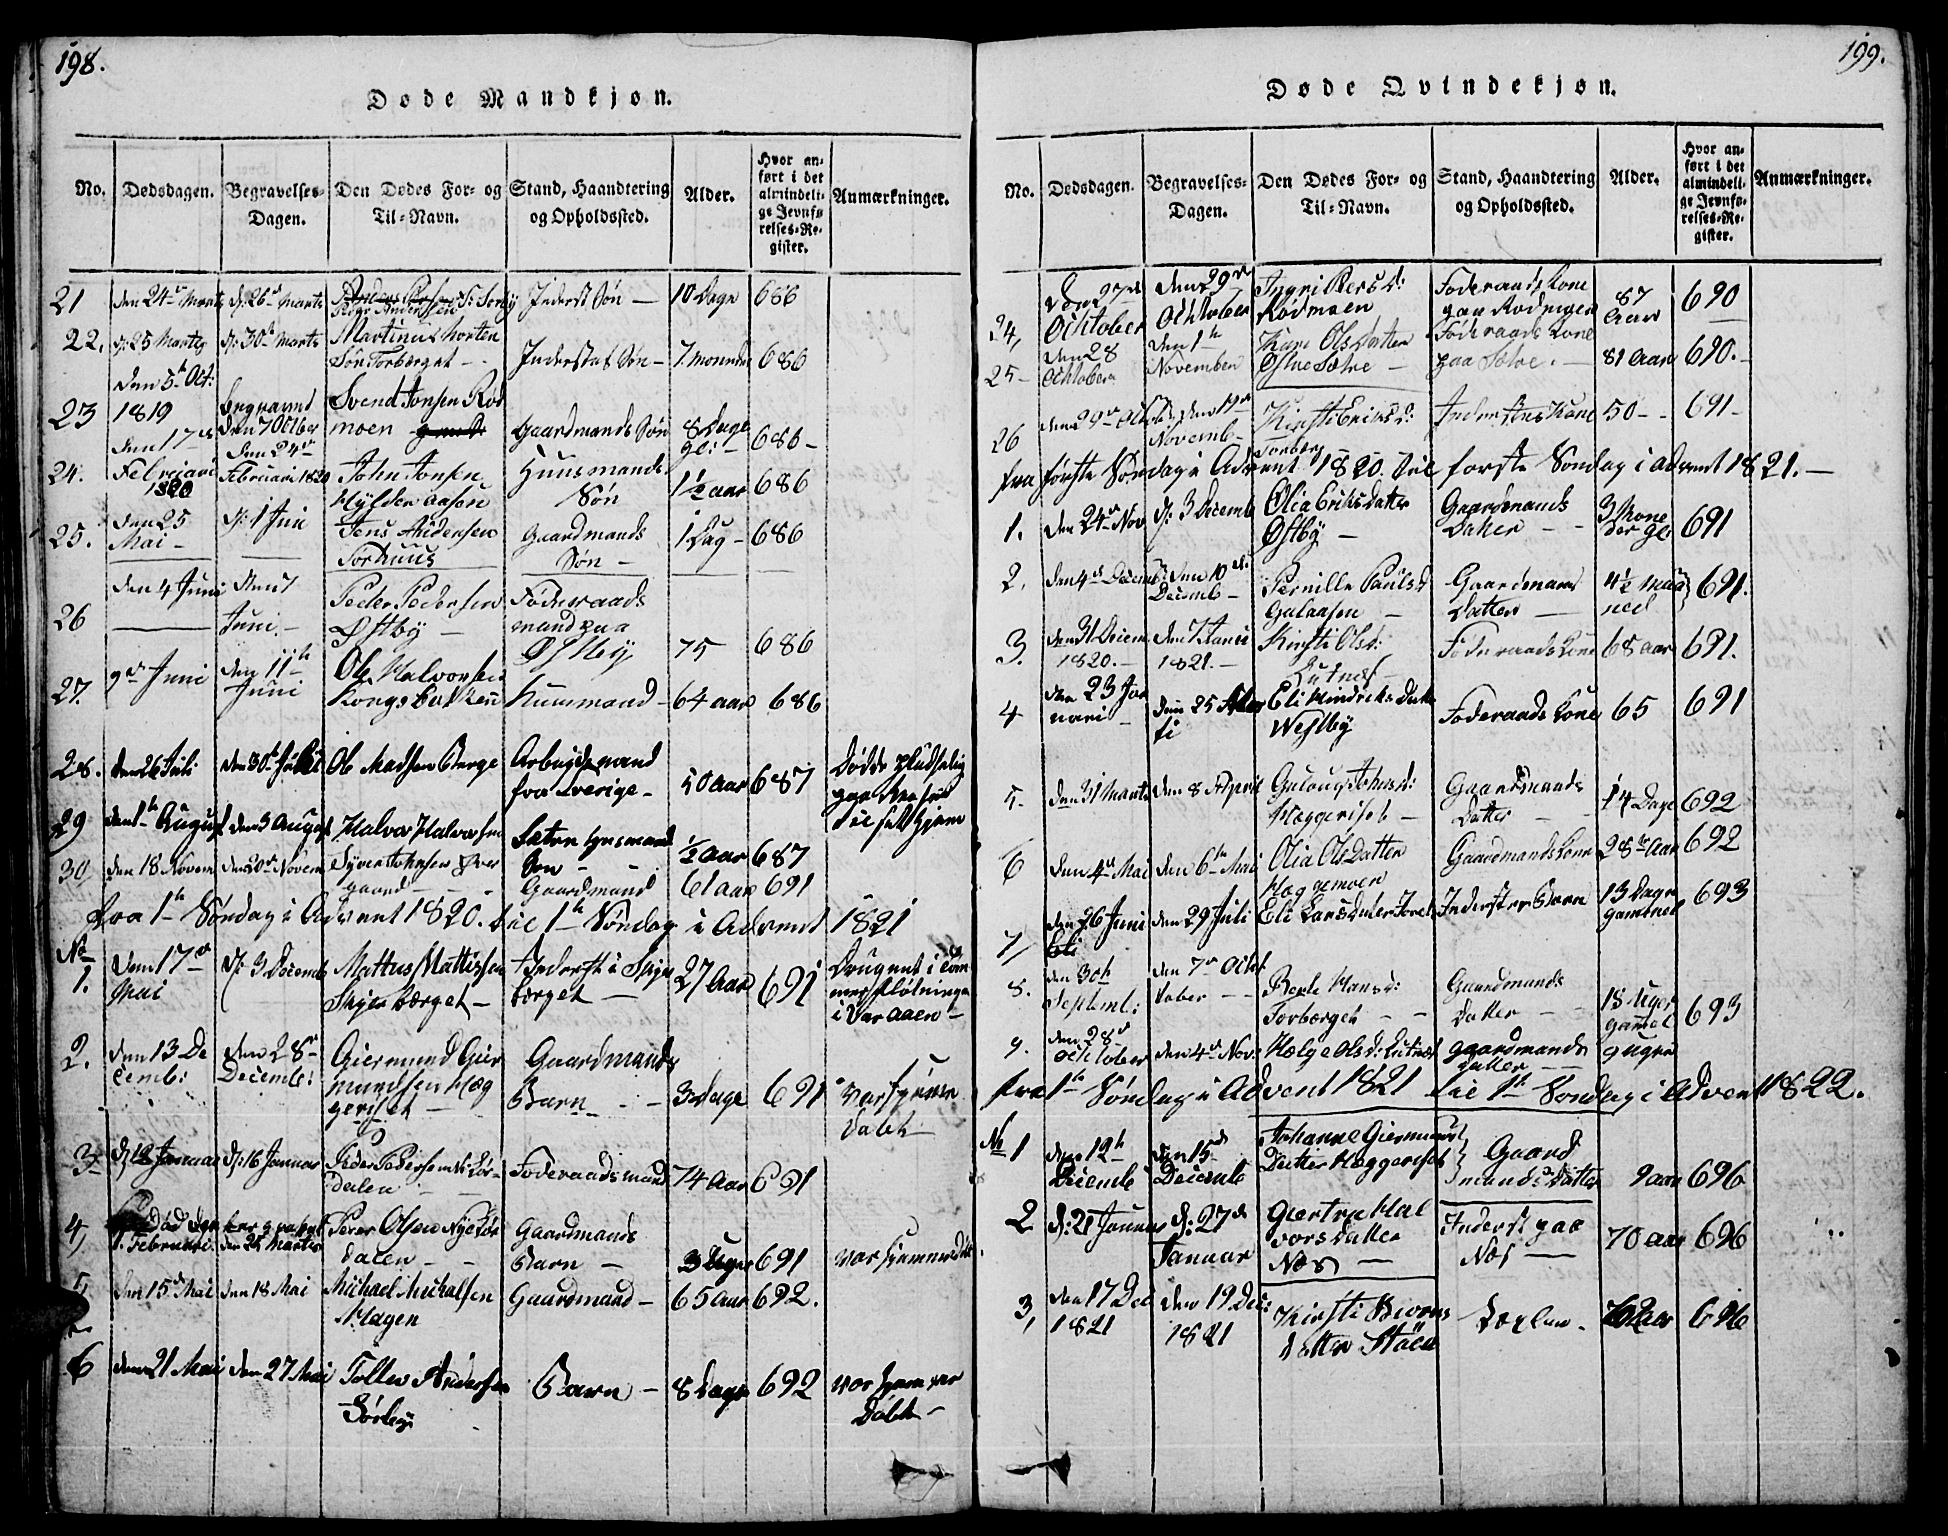 198.
Døde Mandkjøn.
No. Dødsdagen. Begravelses-Dagen. Den Dødes For- og Til-Navn. Stand, Haandtering og Opholdssted. Alder. Hvor anført i det almindelige Jevnførelses-Register. Anmærkninger.
21 den 24de Marts d: 26de Marts Peder Andersen S: Sørby Inderst Søn — 10 Dage 686
22. d: 25 Marts d: 30te Marts Martinus Morten Søn Torberget — Inderstes Søn — 7 Monneder 686
23 den 5te Oct: 1819 begravend den 7 Octber Svend Jonsen Rødmoen Gaardmands Søn 8 Dage gl: 686 –
24. den 17de Februari 1820 den 24de Februari 1820 John Jonsen Hylderaasen Huusmands Søn 1½ aar 686
25. den 25 Mai — d: 1 Juni Jens Andersen Torhuus Gaardmands Søn — 1 Dag – 686
26 den 4 Juni den 7 Juni — Peder Pedersen Østby — Føderaads mand paa Østby 75 686
27. 9de Juni den 11te Juni Ole Halvorsen Kongsbakken Huusmand – 64 aar 686
28. den 26 Juli den 30te Juli Ole Madsen Berge Arbeydsmand fra Sverige – 50 aar 687 Døde pludselig paa Reisen til sit Hjem
29 den 1te August den 3 August Halvor Halvorsen Sæter Huusmand Søn — ½ aar 687
30 den 18 Novem den 20de Novem Syver Johnsen Øvergaard Gaardmand 61 aar 691
Fra 1te Søndag i Advent 1820. til 1te Søndag i Advent 1821
No 1. Den 17de Mai d: 3 Decemb Mattus Mattissen Skjerberget – Inderst i Skjerberget — 27 Aar 691 Druknet i Tømmerfløtningen i Vara aaen –
2. den 13 Decemb: den 28de Decemb: Giermund Giermundsen Hæggeriset — Gaardmands Barn — 3 dage 691 var hjemmedøbt
3 d: 12 Januar d: 16 Januar Peder Pedersen Nye Lørdalen — Føderaadsmand 74 Aar 691
4, død den 1. Februari. begravet den 25 Martis Peder Olsen Nye Lørdalen — Gaardmands Barn — 3 Uger 691 var hjemmedøbt
5 den 15de Mai den 18 Mai Michael Michalsen Hagen Gaardmand — 65 Aar 692.
6 den 21 Mai den 27 Mai Tollev Andersen Sørby Barn — 8 Dage 692 var hjemmedøbt –
199.
Døde Qvindekjøn.
No. Dødsdagen. Begravelses-Dagen. Den Dødes For- og Til-Navn. Stand, Haandtering og Opholdssted. Alder. Hvor anført i det almindelige Jevnførelses-Register. Anmærkninger.
24, den 27de October den 29de October Ingri Persd: Rødmoen Føderaads Kone paa Rødmoen 87 aar 690
25 – den 28 October den 1te November Kari Olsdatter Østre Sætre – Føderaads Kone paa Sætre. – 81 Aar 690. –
26 den 29de Octob: den 1te Novemb – Kirsti Eriksd: Torberg Inderstes Kone 50 – – 691 –
fra første Søndag i Advent 1820. til første Søndag i advent 1821. —
1. den 24de Nov d: 3 Decemb Olia Eriksdatter Østby — Gaardmands Datter — 3 Moneder gl: 691
2. den 4de Decemb: den 10de Decemb – Pernille Paulsd Galaasen — Gaardmands Datter — 4½ Maaned 691.
3. den 31 Decem 1820. – den 7 Janu 1821. – Kirsti Olsd: Lutnæs Føderaads Kone 68 aar 691.
4 den 23 Januari — den 25 Marti Eli Hindriks Datter Westby Føderaads Kone 65 691
5. den 31 Marts den 8 April Gulaug Johnsd: Hæggeriset — Gaardmands Datter — 14 Dage 692
6 den 4de Mai den 6te Mai Olia Olsdatter Hæggemoen Gaardmands Kone 28te Aar 692
7, den 26 Juni den 29 Juli Eli Larsdatter Inderstes Barn 13 Dage gammel 693
8. den 30te Septemb: den 7de October — Berte Hansd: Torberget — Gaardmands Datter — 18 Uger gamel 693
9. den 28de October den 4de Nov: Helge Olsd: Lutnæs gaardmands Datter — 9 uger
fra 1te Søndag i Advent 1821 til 1te Søndag i Advent 1822.
No 1 den 12te Decemb den 15de Decemb Johanne Giermunds Datter Hæggeriset Gaardmands Datter 9 aar 696
2 d: 21 Januar d: 27de Januar Giertru Halvorsdatter Næs — Inderst paa Næs — 70 aar 696
3, den 17 Dec 1821 den 19 Dec: 1821 Kirsti Biørns datter Støen 696